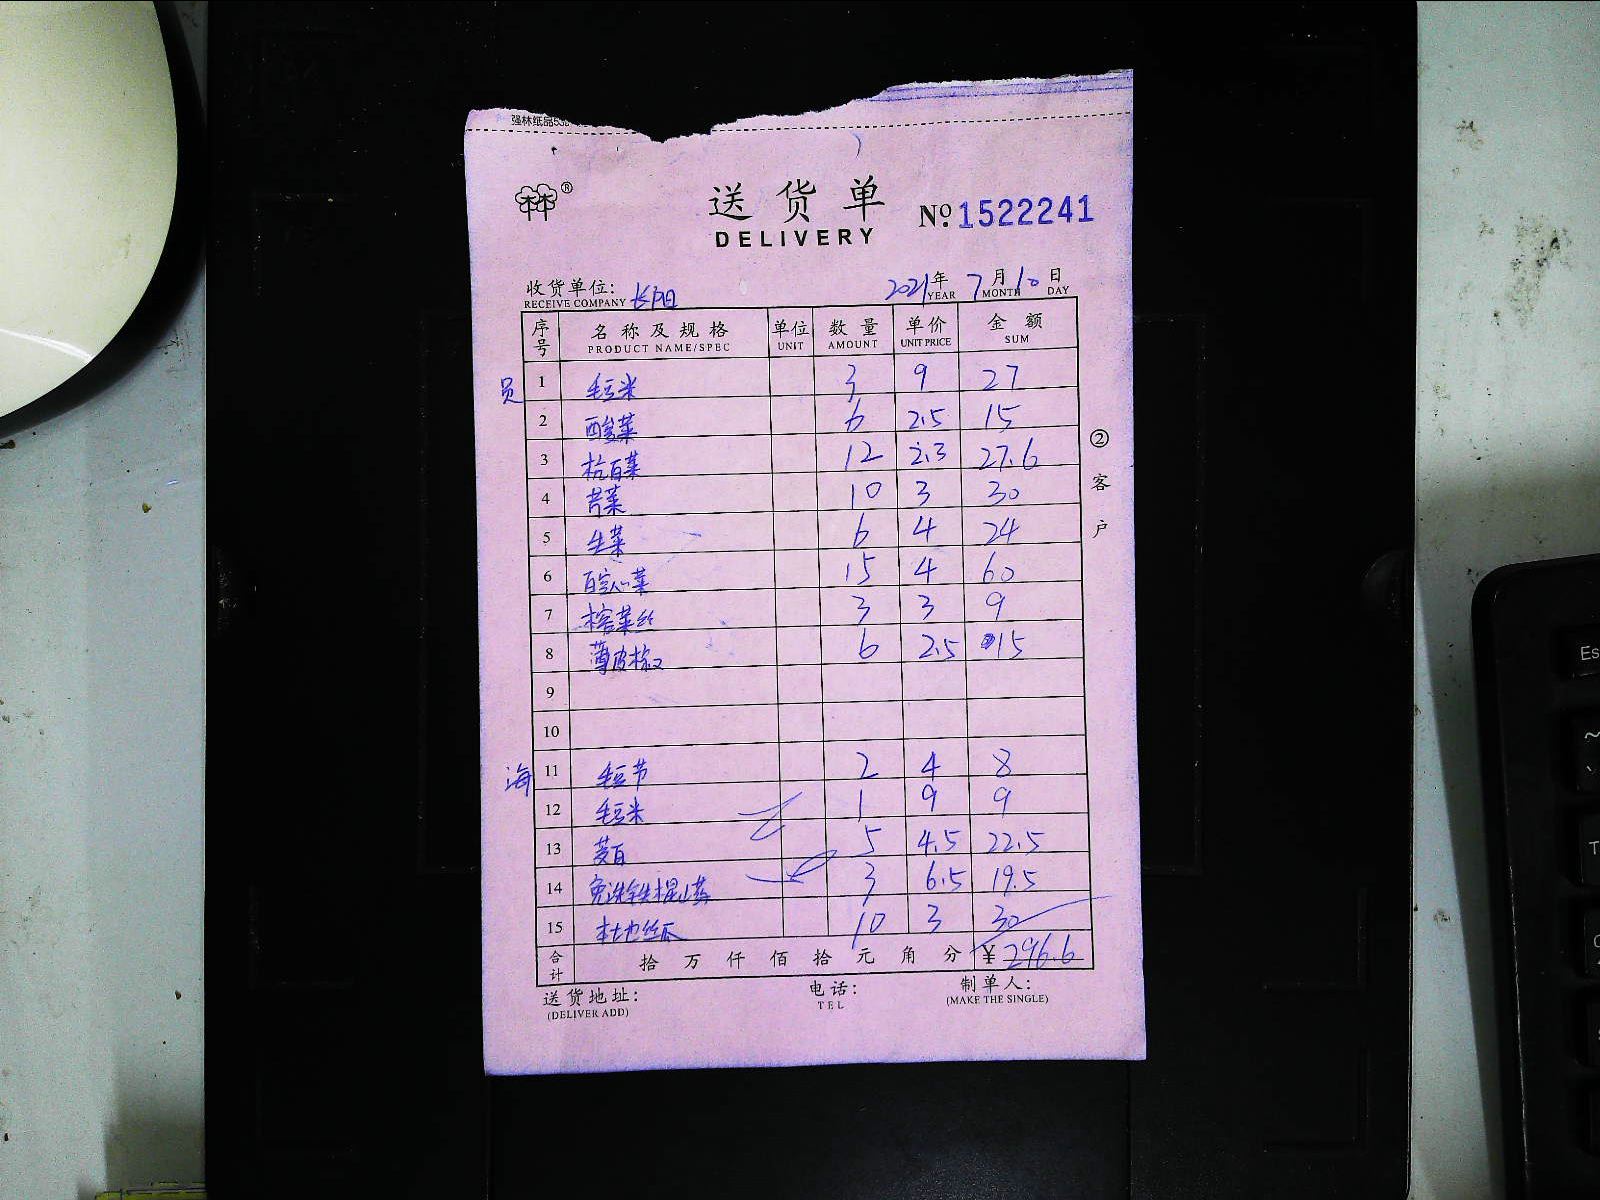 强林纸品
®
送货单
DELIVERY
№ 1522241
收货单位: 长阳
RECEIVE COMPANY
2021年 7月 10日
YEAR MONTH DAY
序号 名称及规格 单位 数量 单价 金额
PRODUCT NAME/SPEC UNIT AMOUNT UNIT PRICE SUM
员 1 毛豆米 3 9 27
2 酸菜 6 2.5 15
3 杭百菜 12 2.3 27.6
4 芹菜 10 3 30
5 生菜 6 4 24
6 百空心菜 15 4 60
7 榨菜丝 3 3 9
8 薄皮椒 6 2.5 15
9
10
海 11 毛豆节 2 4 8
12 毛豆米 1 9 9
13 茭百 5 4.5 22.5
14 免洗铁棍山药 3 6.5 19.5
15 本地丝瓜 10 3 30
合计 拾 万 仟 佰 拾 元 角 分 ¥296.6
送货地址: 电话: 制单人:
(DELIVER ADD) TEL (MAKE THE SINGLE)
②客户
Es